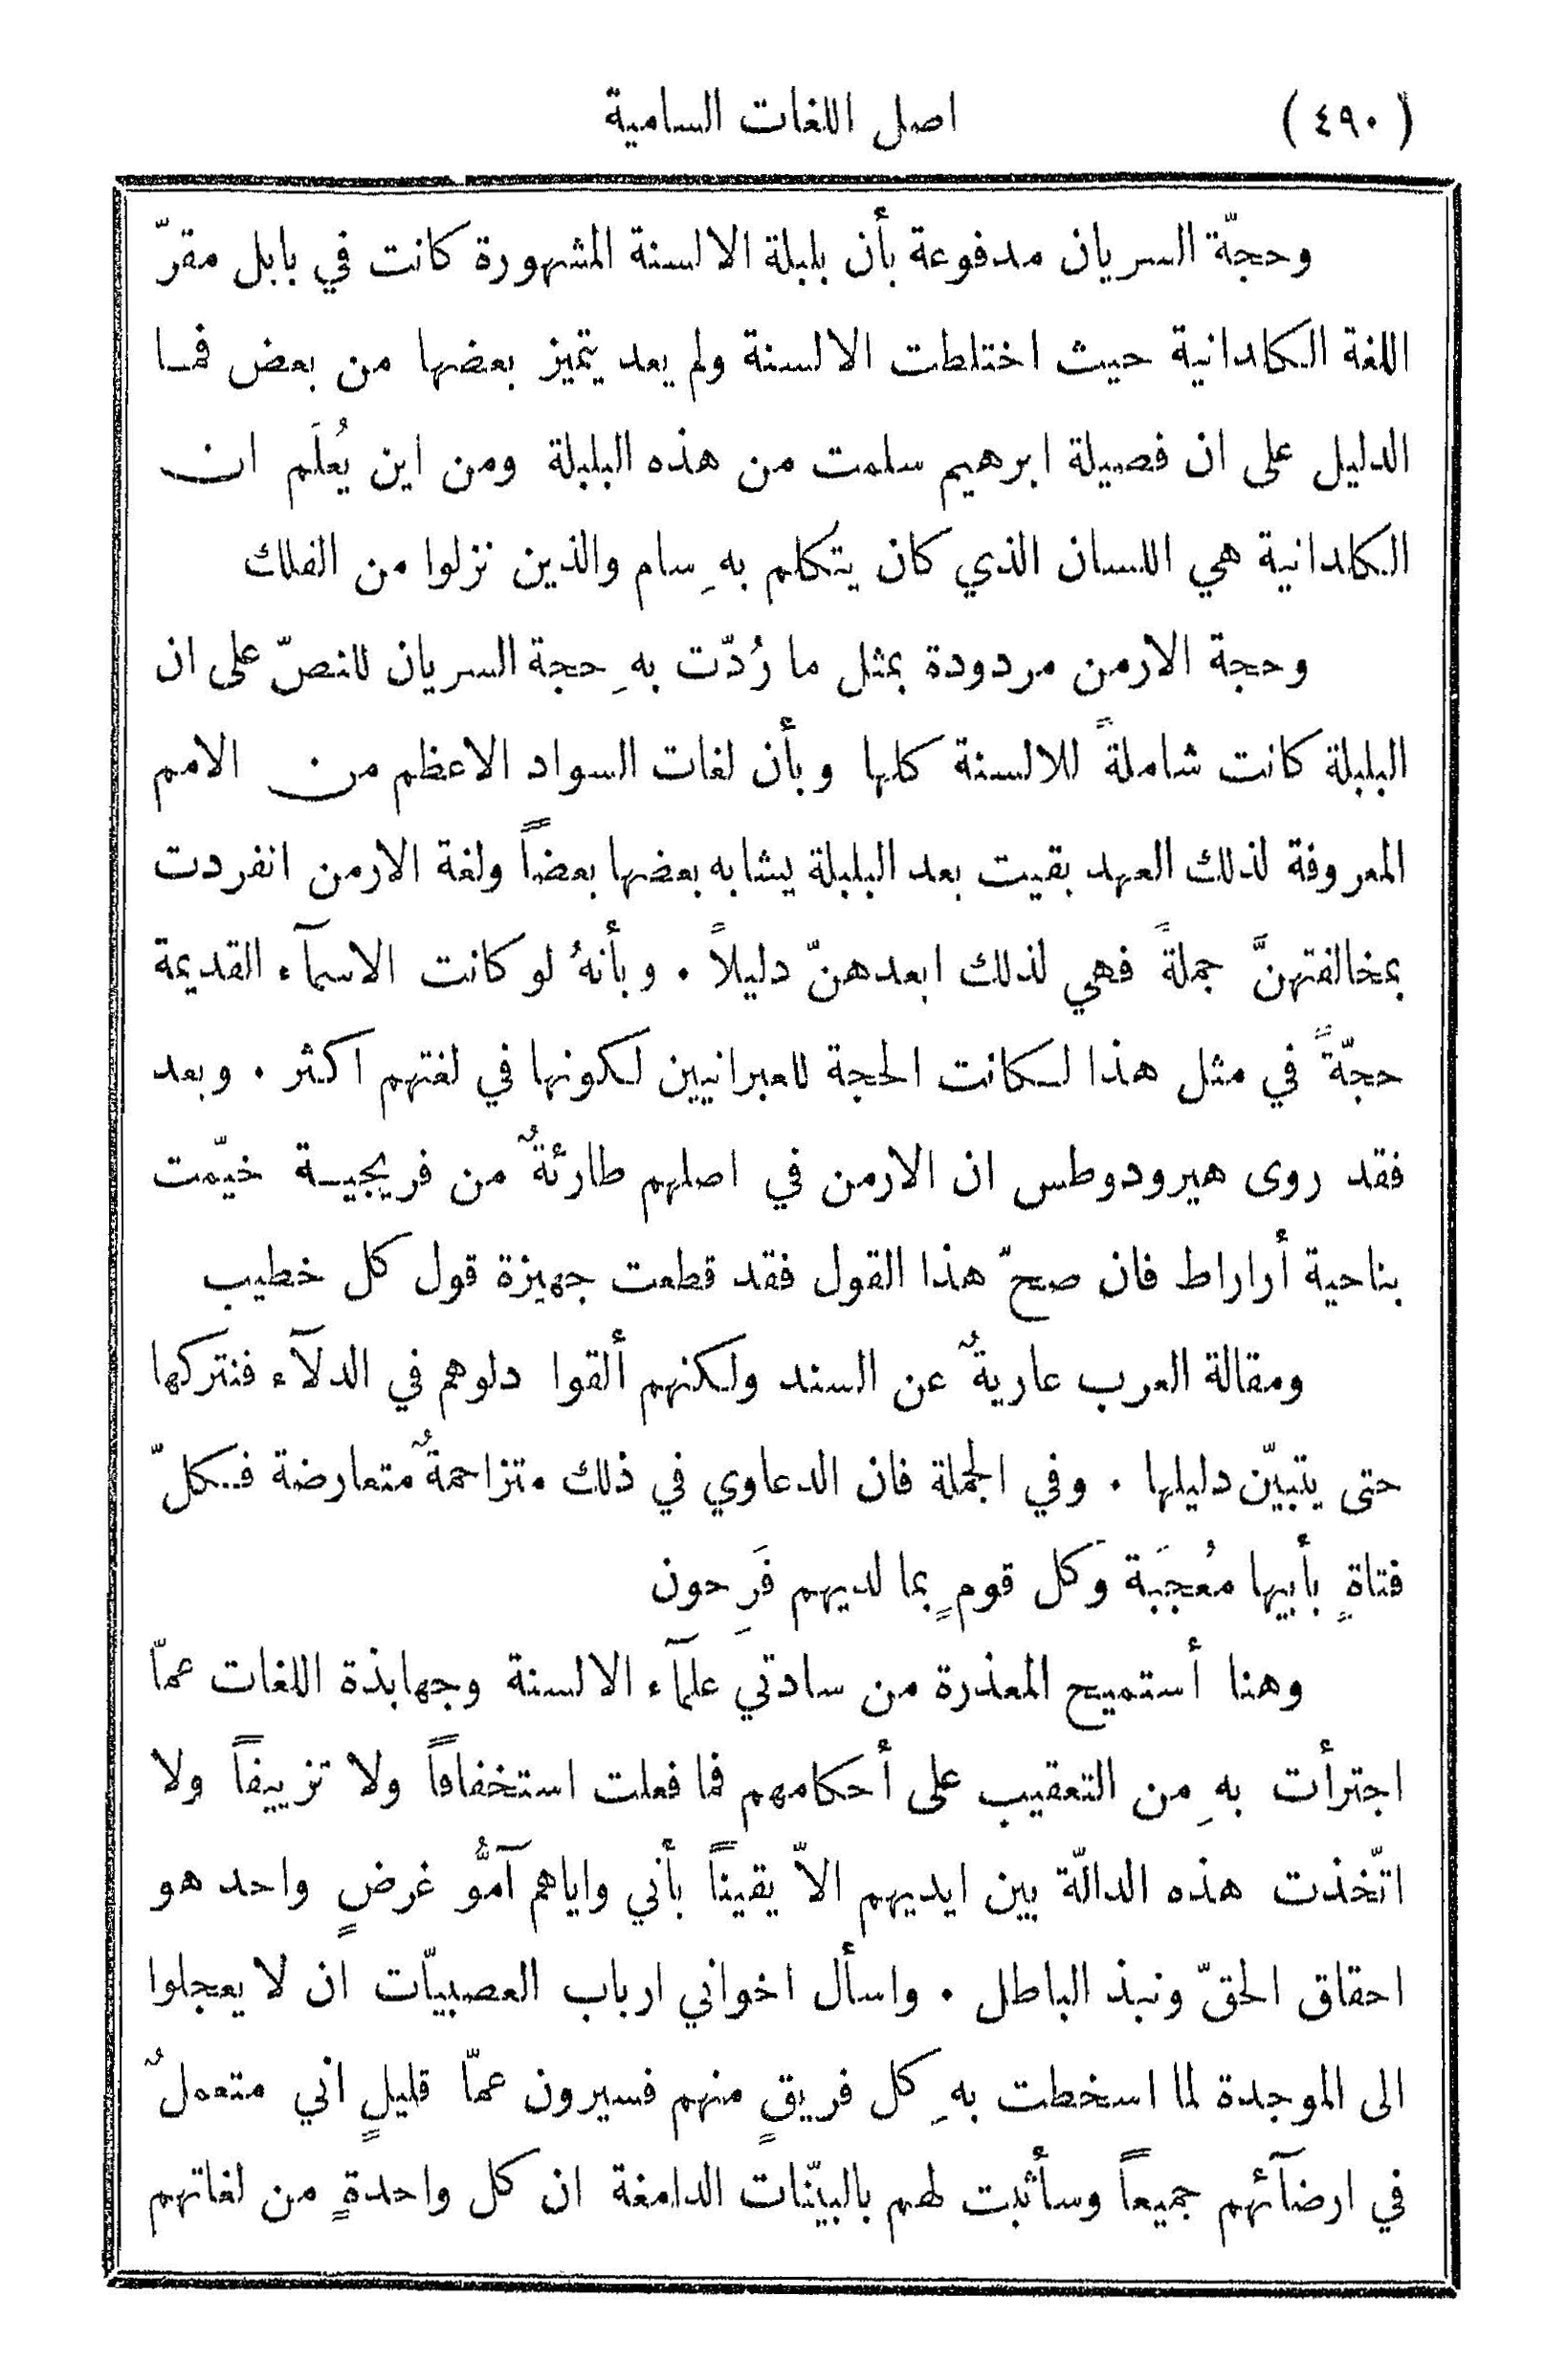 (٤٩٠) اصل اللغات السامية
وحجّة السريان مدفوعة بأن بلبلة الالسنة المشهورة كانت في بابل مقرّ
اللغة الكلدانية حيث اختلطت الالسنة ولم يعد يتميز بعضها من بعض فما
الدليل على ان فصيلة ابرهيم سلمت من هذه البلبلة ومن اين يُعلَم ان
الكلدانية هي اللسان الذي كان يتكلم بهِ سام والذين نزلوا من الفلك
وحجة الارمن مردودة بمثل ما رُدّت بهِ حجة السريان للنصّ على ان
البلبلة كانت شاملةً للالسنة كلها وبأن لغات السواد الاعظم من الامم
المعروفة لذلك العهد بقيت بعد البلبلة يشابه بعضها بعضاً ولغة الارمن انفردت
بمخالفتهنَّ جملةً فهي لذلك ابعدهنّ دليلاً ٠ وبأنهُ لو كانت الاسمآء القديمة
حجّةً في مثل هذا لكانت الحجة للعبرانيين لكونها في لغتهم اكثر ٠ وبعد
فقد روى هيرودوطس ان الارمن في اصلهم طارئةٌ من فريجية خيّمت
بناحية أراراط فان صحّ هذا القول فقد قطعت جهيزة قول كل خطيب
ومقالة العرب عاريةٌ عن السند ولكنهم ألقوا دلوهم في الدلآء فنتركها
حتى يتبيّن دليلها ٠ وفي الجملة فان الدعاوي في ذلك متزاحمةٌ متعارضة فكلّ
فتاةٍ بأبيها مُعجَبة وكل قومٍ بما لديهم فَرِحون
وهنا أستميح المعذرة من سادتي علمآء الالسنة وجهابذة اللغات عمّا
اجترأت بهِ من التعقيب على أحكامهم فما فعلت استخفافاً ولا تزييفاً ولا
اتّخذت هذه الدالّة بين ايديهم الاّ يقيناً بأني واياهم آمُّو غرضٍ واحد هو
احقاق الحقّ ونبذ الباطل ٠ واسأل اخواني ارباب العصبيّات ان لا يعجلوا
الى الموجدة لما اسخطت بهِ كل فريقٍ منهم فسيرون عمّا قليلٍ اني متعملٌ
في ارضآئهم جميعاً وسأثبت لهم بالبيّنات الدامغة ان كل واحدةٍ من لغاتهم